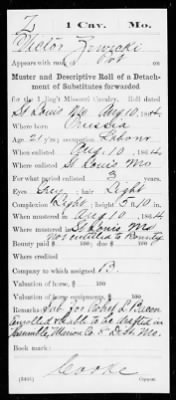 Z | 1 Cav. | Mo.
Victor Zewicki
Appears with rank of Pvt on
Muster and Descriptive Roll of a Detachment
of Substitutes forwarded
for the 1 Reg't Missouri Cavalry. Roll dated
St Louis Mo Aug 10, 1864.
Where born Prussia
Age 21 y'rs; occupation Laborer
When enlisted Aug. 10, 1864.
Where enlisted St Louis Mo
For what period enlisted 3 years.
Eyes Grey; hair Light
Complexion Light; height 5 ft. 10 in.
When mustered in Aug 10, 1864
Where mustered in St Louis Mo
Not entitled to Bounty
Bounty paid $ 100; due $ 100
Where credited
Company to which assigned B.
Valuation of horse, $ 100
Valuation of horse equipments, $ 100
Remarks: Sub. for Bacon
enrolled & liable to be drafted in
Marion Co. Dist. Mo.
Book mark:
Cooke
Copyist.